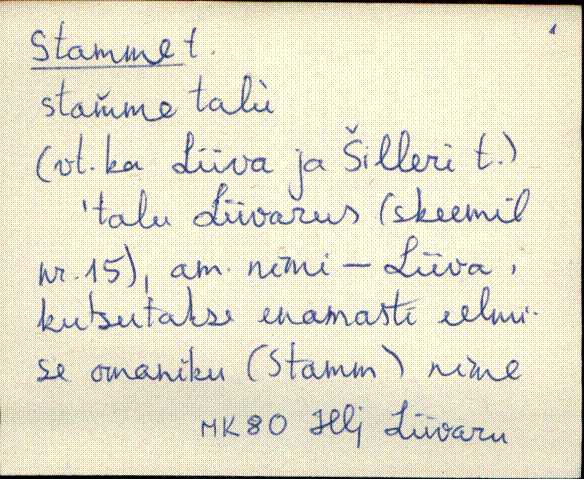 Stamme t.
stam̆me talu̇
(vt. ka Liiva ja Šilleri t.)
'talu Liivarus (skeemil
nr. 15), am. nimi – Liiva,
kutsutakse enamasti eelmi-
se omaniku (Stamm) nime
MK 80 Hlj Liivaru